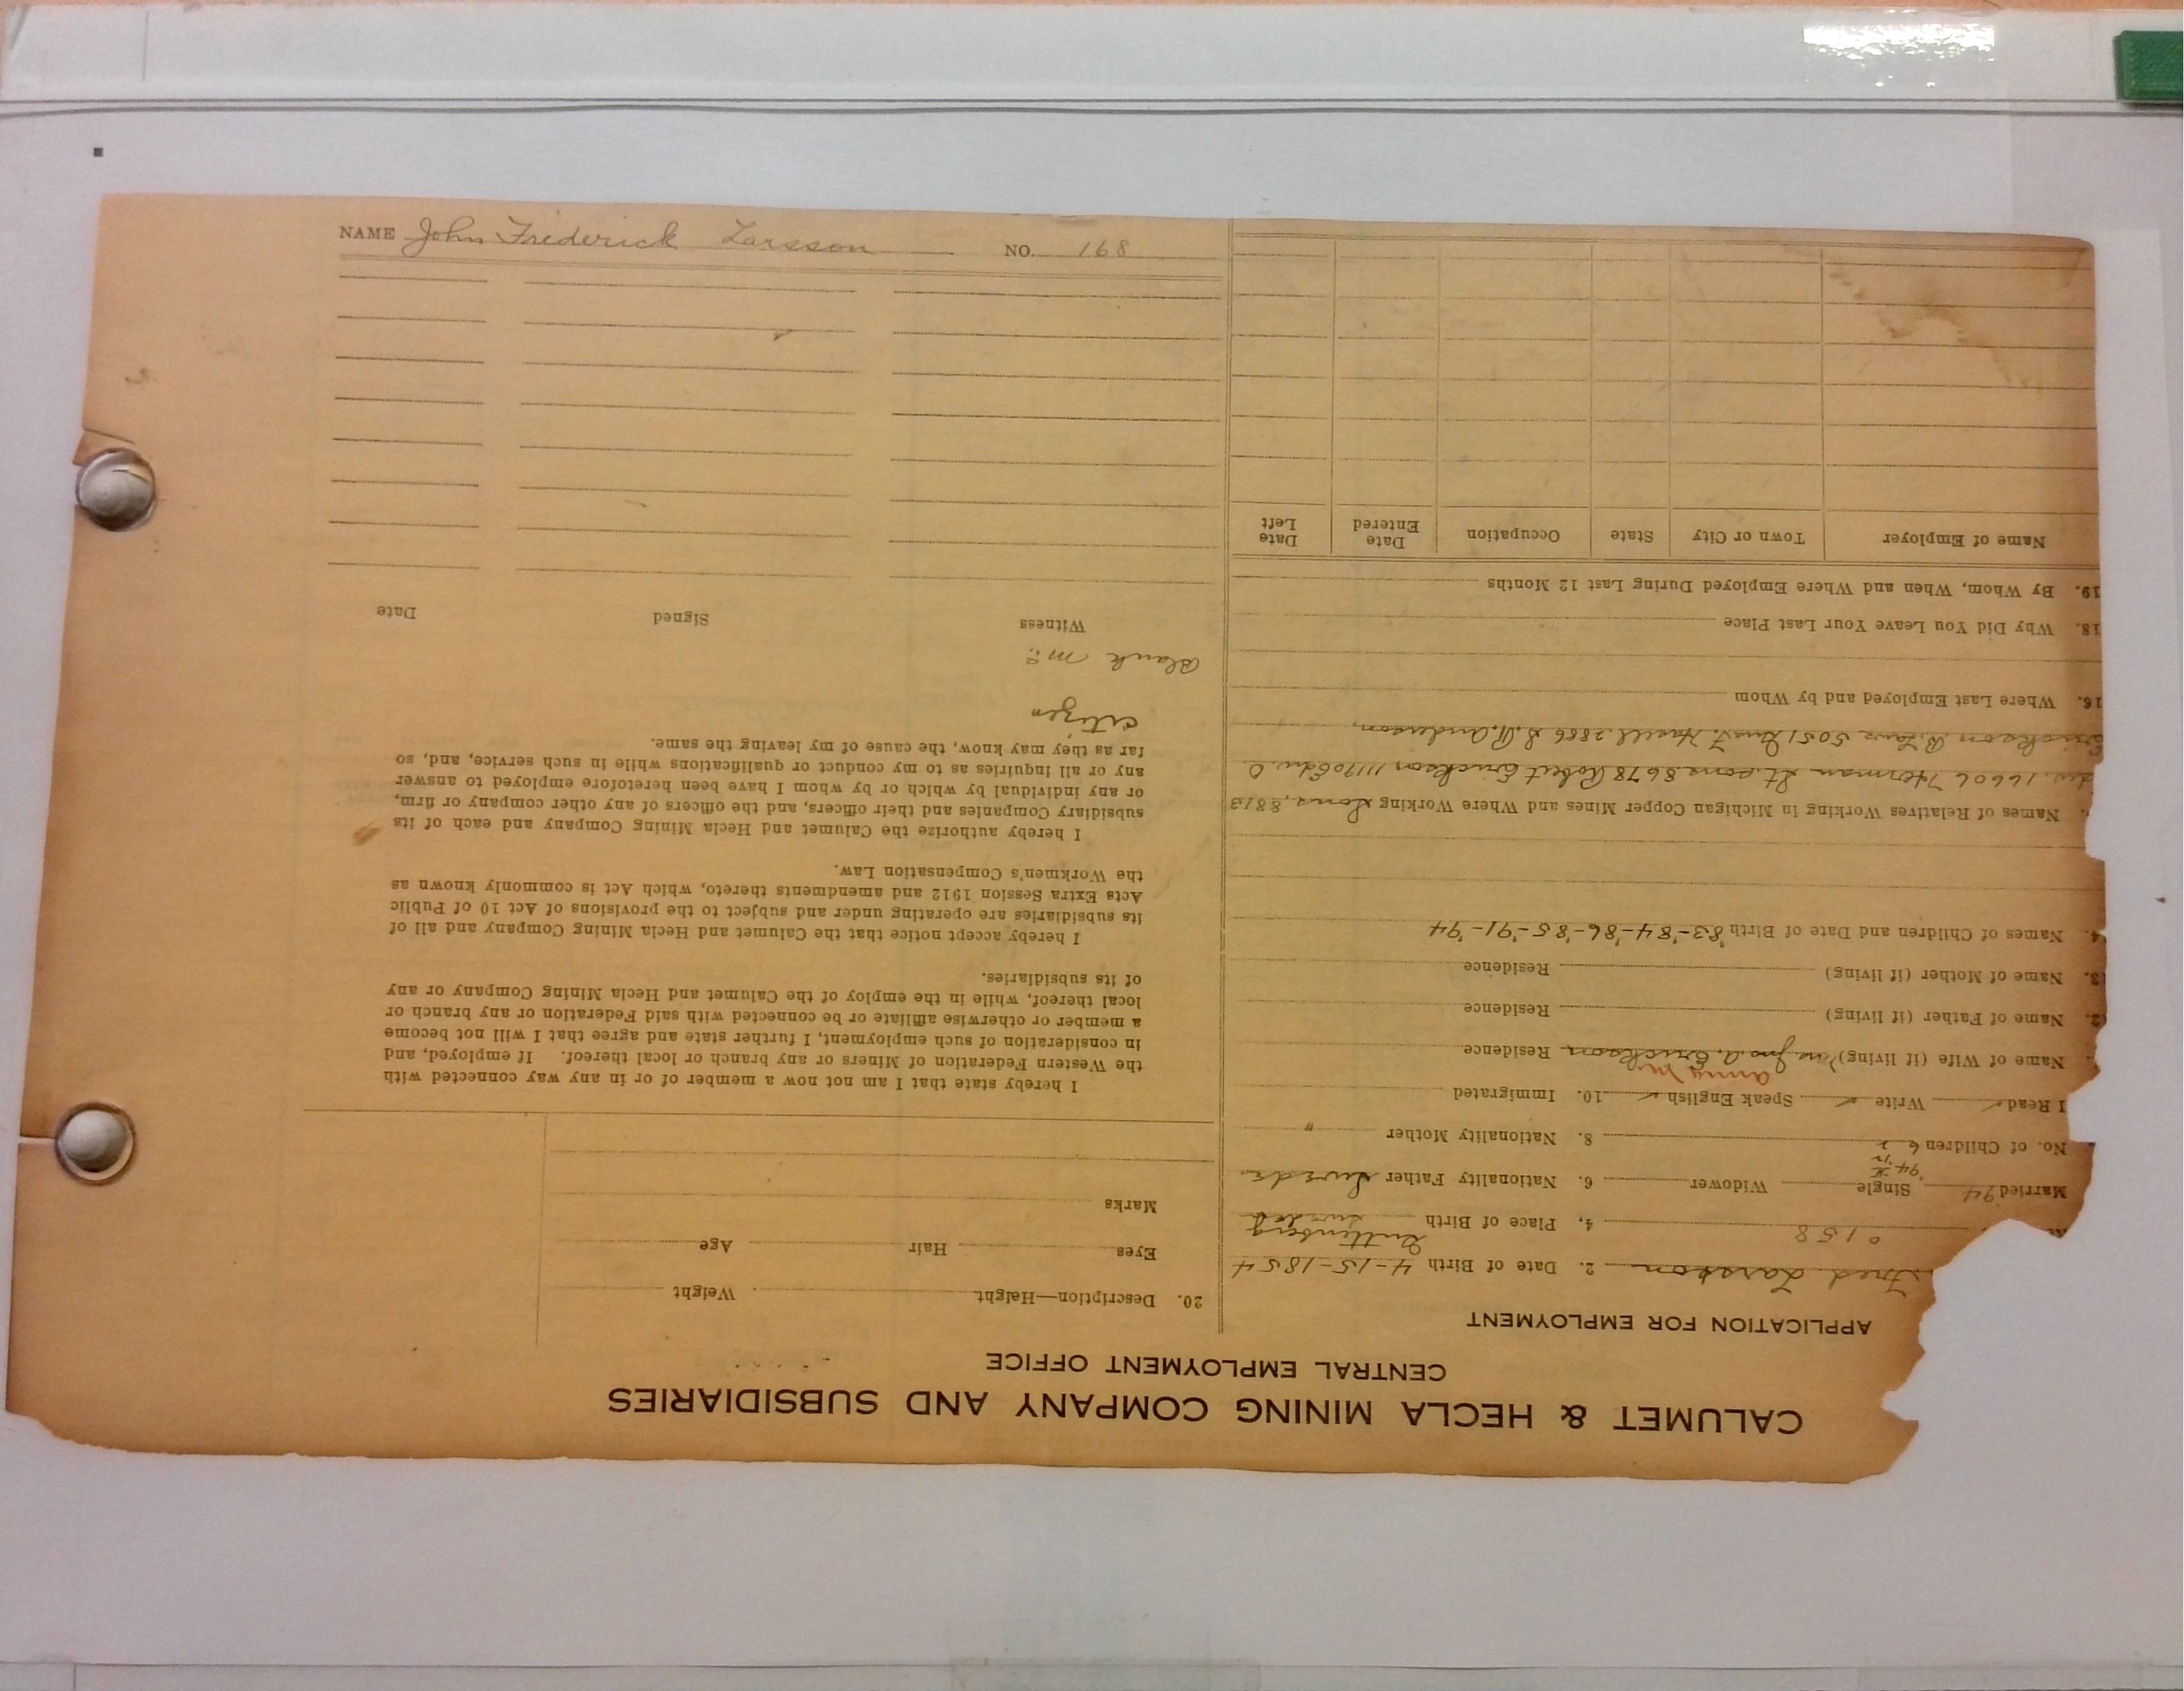 CALUMET & HECLA MINING COMPANY AND SUBSIDIARIES
CENTRAL EMPLOYMENT OFFICE
APPLICATION FOR EMPLOYMENT
Fred Larsson 2. Date of Birth 4-15-1854
0158 4. Place of Birth Sweden
Married 94 Single Widower 6. Nationality Father Swede
'94
No. of Children 6 8. Nationality Mother "
I Read Write Speak English 10. Immigrated
Anna
Name of Wife (if living) Jno. A. Erickson Residence
2. Name of Father (if living) Residence
13. Name of Mother (if living) Residence
4. Names of Children and Date of Birth '83-'84-'86-'85-'91-'94
Names of Relatives Working in Michigan Copper Mines and Where Working Sons, 8813
16606 Herman St. sons 8678 Robert Erickson 11190 Edw. O.
Erickson B. Laws 5051 Gust. Hasell 2886 S. A. Anderson,
16. Where Last Employed and by Whom
18. Why Did You Leave Your Last Place
19. By Whom, When and Where Employed During Last 12 Months
Name of Employer Town or City State Occupation Date Entered Date Left
20. Description—Height Weight
Eyes Hair Age
Marks
I hereby state that I am not now a member of or in any way connected with
the Western Federation of Miners or any branch or local thereof. If employed, and
in consideration of such employment, I further state and agree that I will not become
a member or otherwise affiliate or be connected with said Federation or any branch or
local thereof, while in the employ of the Calumet and Hecla Mining Company or any
of its subsidiaries.
I hereby accept notice that the Calumet and Hecla Mining Company and all of
its subsidiaries are operating under and subject to the provisions of Act 10 of Public
Acts Extra Session 1912 and amendments thereto, which Act is commonly known as
the Workmen's Compensation Law.
I hereby authorize the Calumet and Hecla Mining Company and each of its
subsidiary Companies and their officers, and the officers of any other company or firm,
or any individual by which or by whom I have been heretofore employed to answer
any or all inquiries as to my conduct or qualifications while in such service, and, so
far as they may know, the cause of my leaving the same.
citizen
Blank
Witness Signed Date
NAME John Frederick Larsson NO. 168